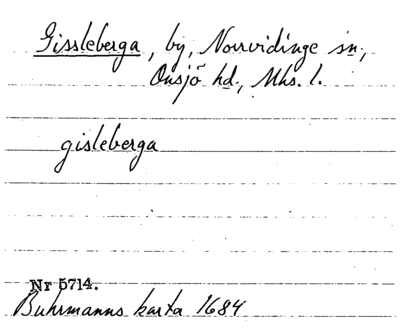 Gissleberga, by, Norrvidinge sn,
Onsjö hd., Mhs. l.
gisleberga
Nr 5714.
Buhrmanns karta 1684